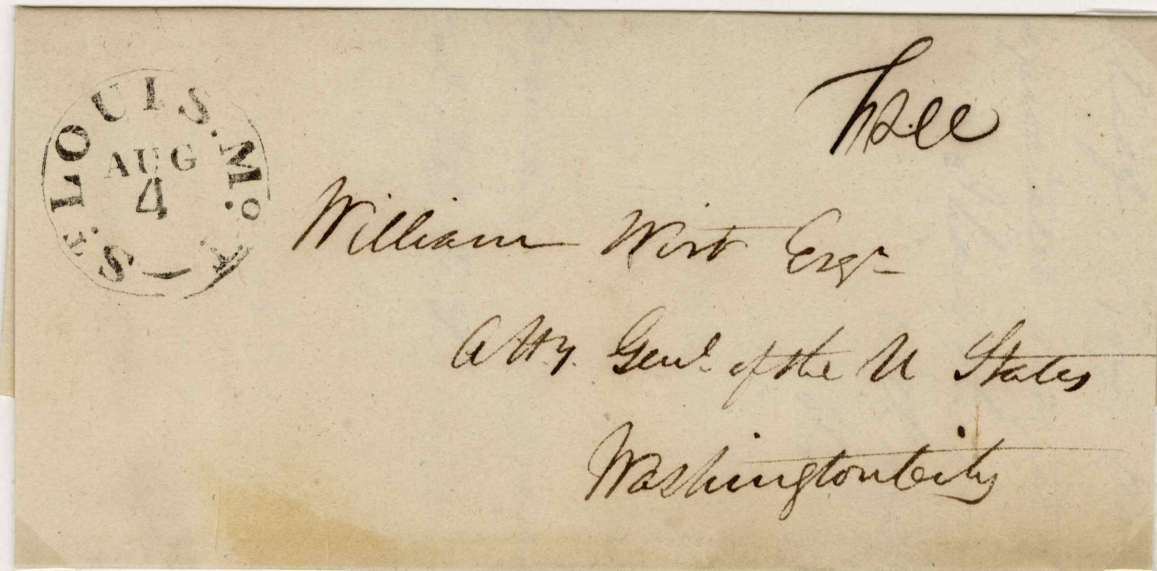 St. LOUIS. Mo. T
AUG
4
Free
William Wirt Esqr
Atty. Genl. of the U States
Washington City